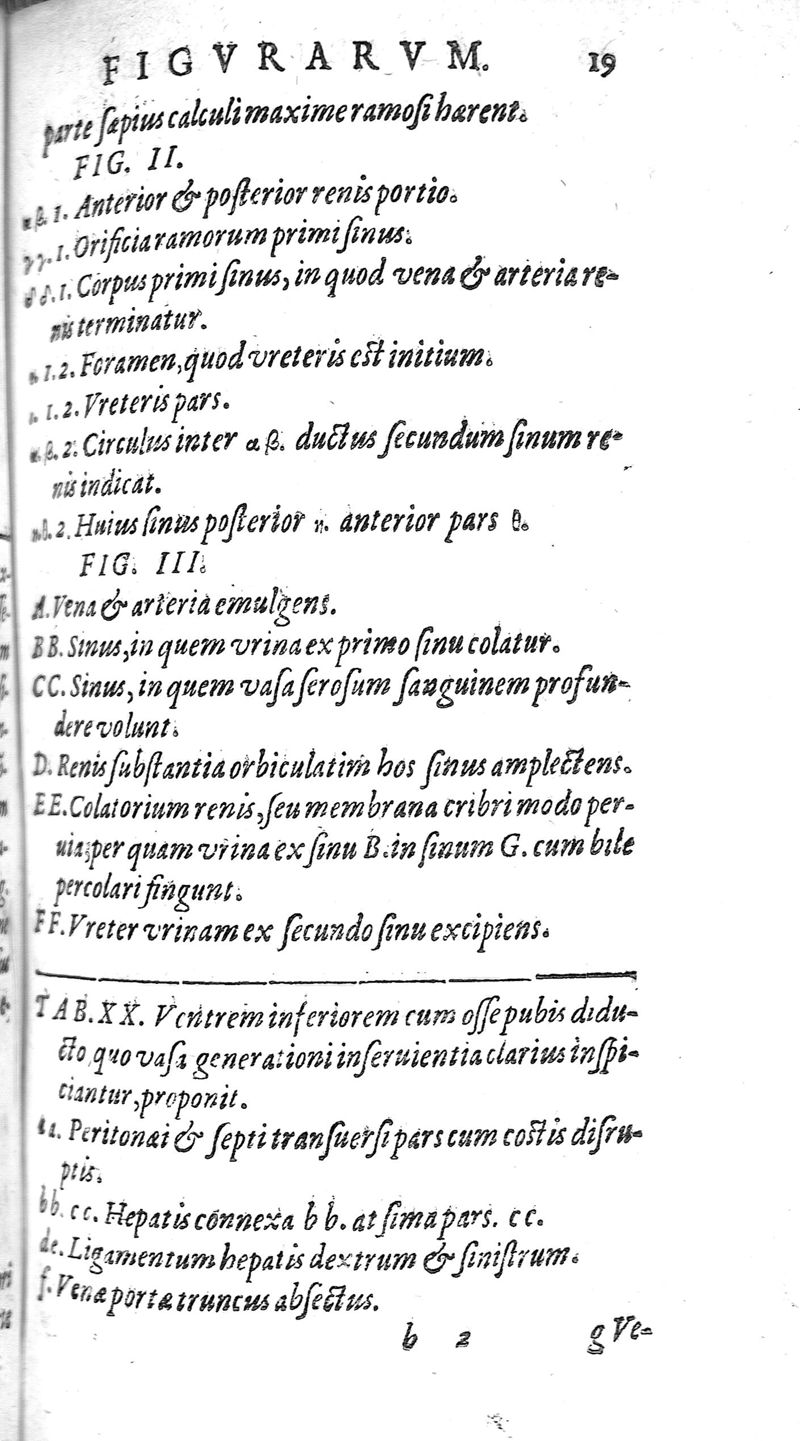 FIGVRARVM. 19
parte ſæpius calculi maxime ramoſi hærent.
FIG. II.
α β. 1. Anterior & poſterior renis portio.
γγ. 1. Orificia ramorum primi ſinus.
δ δ. 1. Corpus primi ſinus, in quod vena & arteria re-
nis terminatur.
1. 2. Foramen, quod vreteris eſt initium.
1. 2. Vreteris pars.
β. 2. Circulus inter α β. ductus ſecundum ſinum re-
nis indicat.
2. Huius ſinus poſterior η. anterior pars θ.
FIG. III.
A. Vena & arteria emulgens.
BB. Sinus, in quem vrina ex primo ſinu colatur.
CC. Sinus, in quem vaſa ſeroſum ſanguinem profun-
dere volunt.
D. Renis ſubſtantia orbiculatim hos ſinus amplectens.
EE. Colatorium renis, ſeu membrana cribri modo per-
uia; per quam vrina ex ſinu B. in ſinum G. cum bile
percolari fingunt.
FF. Vreter vrinam ex ſecundo ſinu excipiens.
TAB. XX. Ventrem inferiorem cum oſſe pubis didu-
cto, quo vaſa generationi inſeruientia clarius inſpi-
ciantur, proponit.
aa. Peritonæi & ſepti tranſuerſi pars cum coſtis diſru-
ptis.
bb. cc. Hepatis connexa bb. at ſima pars. cc.
de. Ligamentum hepatis dextrum & ſiniſtrum.
f. Venæ portæ truncus abſectus.
b 2 g Ve-